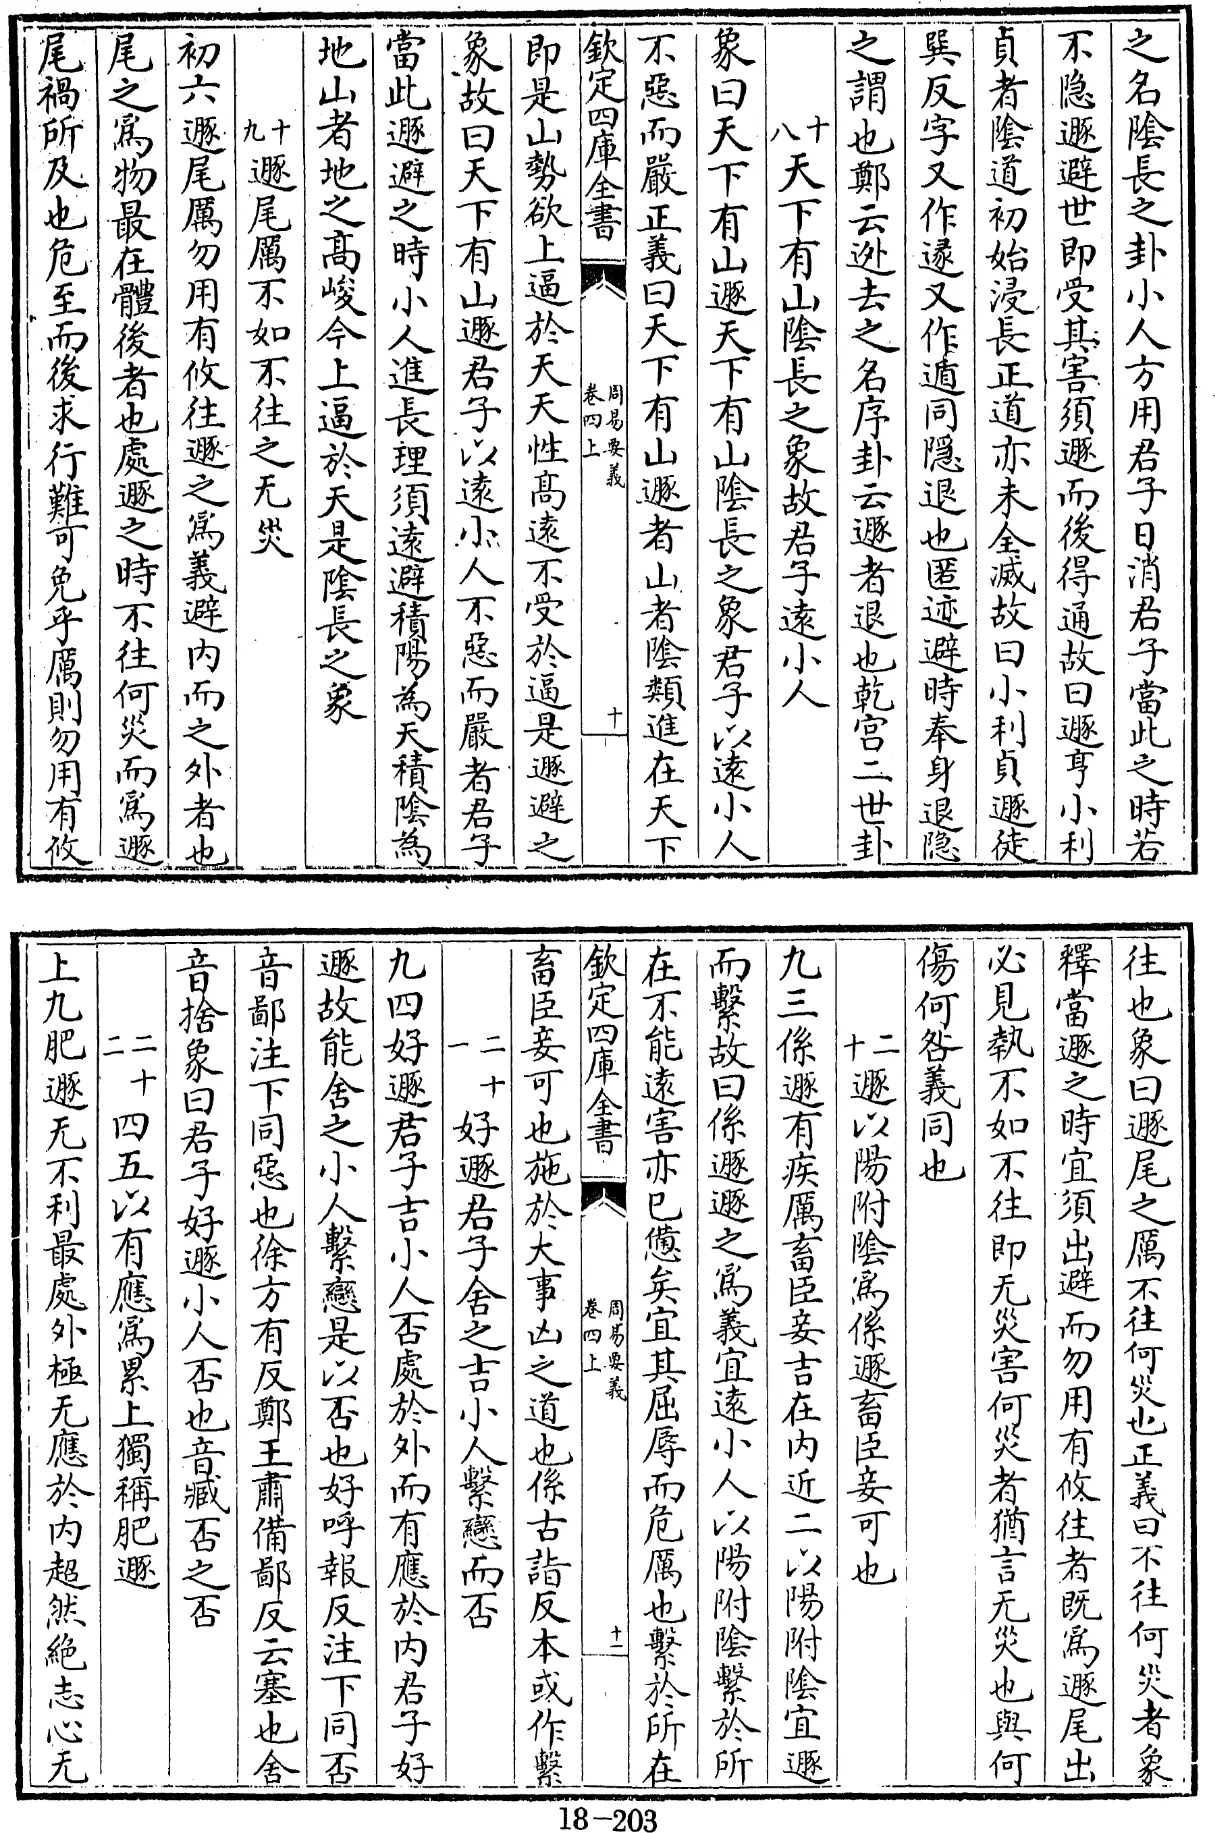 之名陰長之卦小人方用君子日消君子當此之時若
不隐遯避世即受其害須遯而後得通故曰遯亨小利
貞者陰道初始浸長正道亦未全滅故曰小利貞遯徒
巽反字又作遂又作遁同隠退也匿迹避時奉身退隐
之謂也鄭云逃去之名序卦云遯者退也乾宫二世卦
十八天下有山陰長之象故君子遠小人
象曰天下有山遯天下有山陰長之象君子以遠小人
不惡而嚴正義曰天下有山遯者山者陰類進在天下
欽定四庫全書
周易要義
卷四上
十
即是山勢欲上逼於天天性髙遠不受於逼是遯避之
象故曰天下有山遯君子以遠小人不惡而嚴者君子
當此遯避之時小人進長理須遠避積陽為天積陰為
地山者地之髙峻今上逼於天是陰長之象
十九遯尾厲不如不往之无災
初六遯尾厲勿用有攸往遯之爲義避内而之外者也
尾之爲物最在體後者也處遯之時不往何災而爲遯
尾禍所及也危至而後求行難可免乎厲則勿用有攸
往也象曰遯尾之厲不往何災也正義曰不往何災者象
釋當遯之時宜須出避而勿用有攸往者既爲遯尾出
必見執不如不往即无災害何災者猶言无災也與何
傷何咎義同也
二十遯以陽附陰爲係遯畜臣妾可也
九三係遯有疾厲畜臣妾吉在内近二以陽附陰宜遯
而繫故曰係遯遯之爲義宜遠小人以陽附陰繫於所
在不能遠害亦已憊矣宜其屈辱而危厲也繫於所在
欽定四庫全書
周易要義
卷四上
十一
畜臣妾可也施於大事凶之道也係古詣反本或作繫
二十一好遯君子舍之吉小人繫戀而否
九四好遯君子吉小人否處於外而有應於内君子好
遯故能舍之小人繫戀是以否也好呼報反注下同否
音鄙注下同惡也徐方有反鄭王肅備鄙反云塞也舍
音捨象曰君子好遯小人否也音臧否之否
二十二四五以有應爲累上獨稱肥遯
上九肥遯无不利最處外極无應於内超然絶志心无
18-203